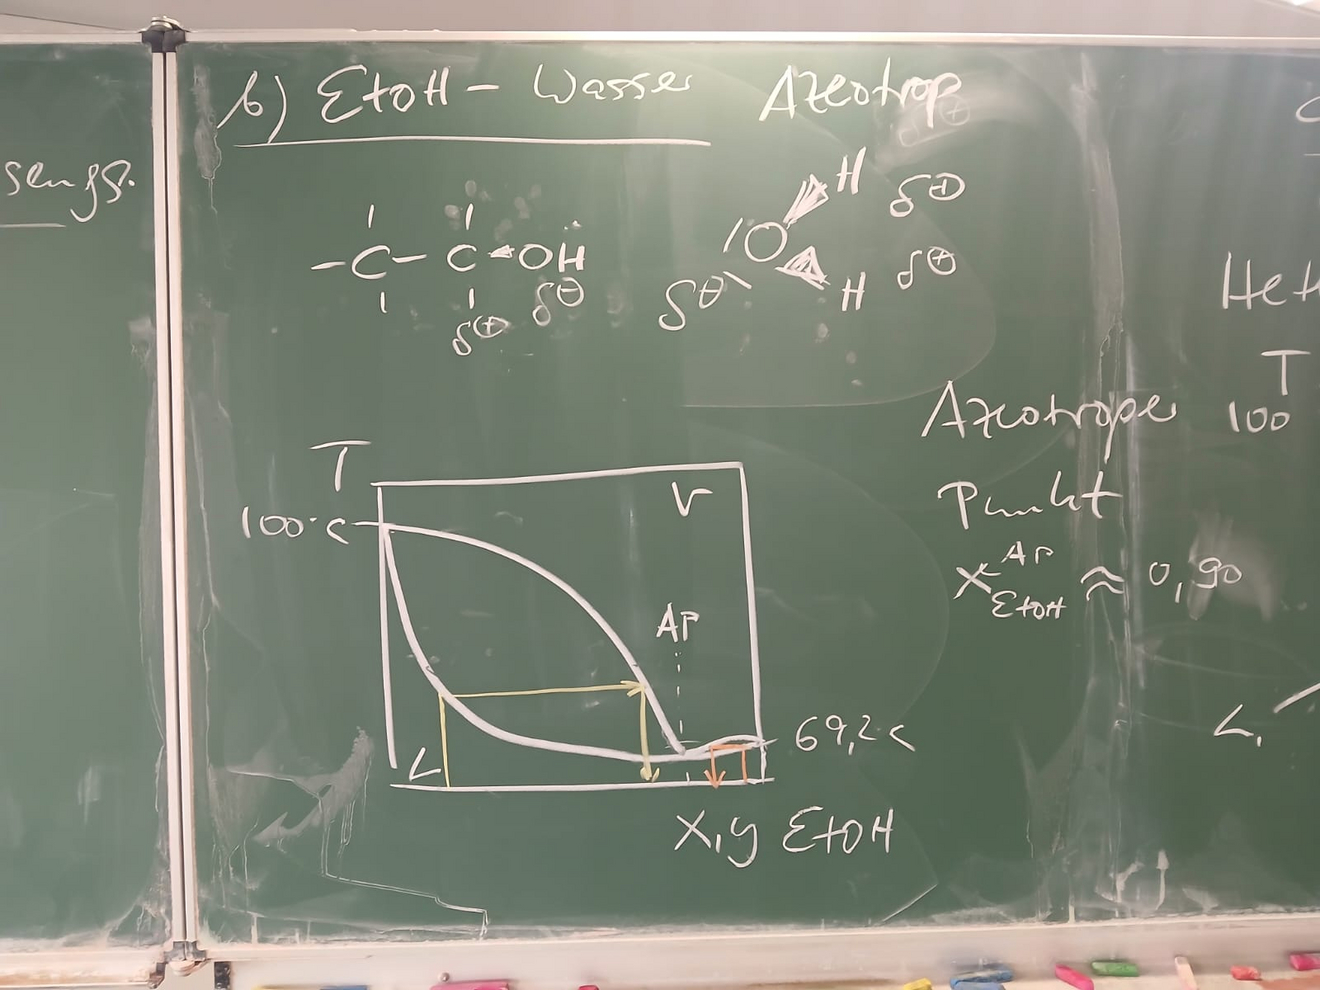 sungs.
b) EtOH – Wasser Azeotrop
–C–C–OH
δ⊕ δ⊖
O
H δ⊕
H δ⊕
δ⊖
T
100°C
V
AP
L
69,2°C
x,y EtOH
Azeotroper
Punkt
x AP EtOH ≈ 0,90
Het
T
100
L,